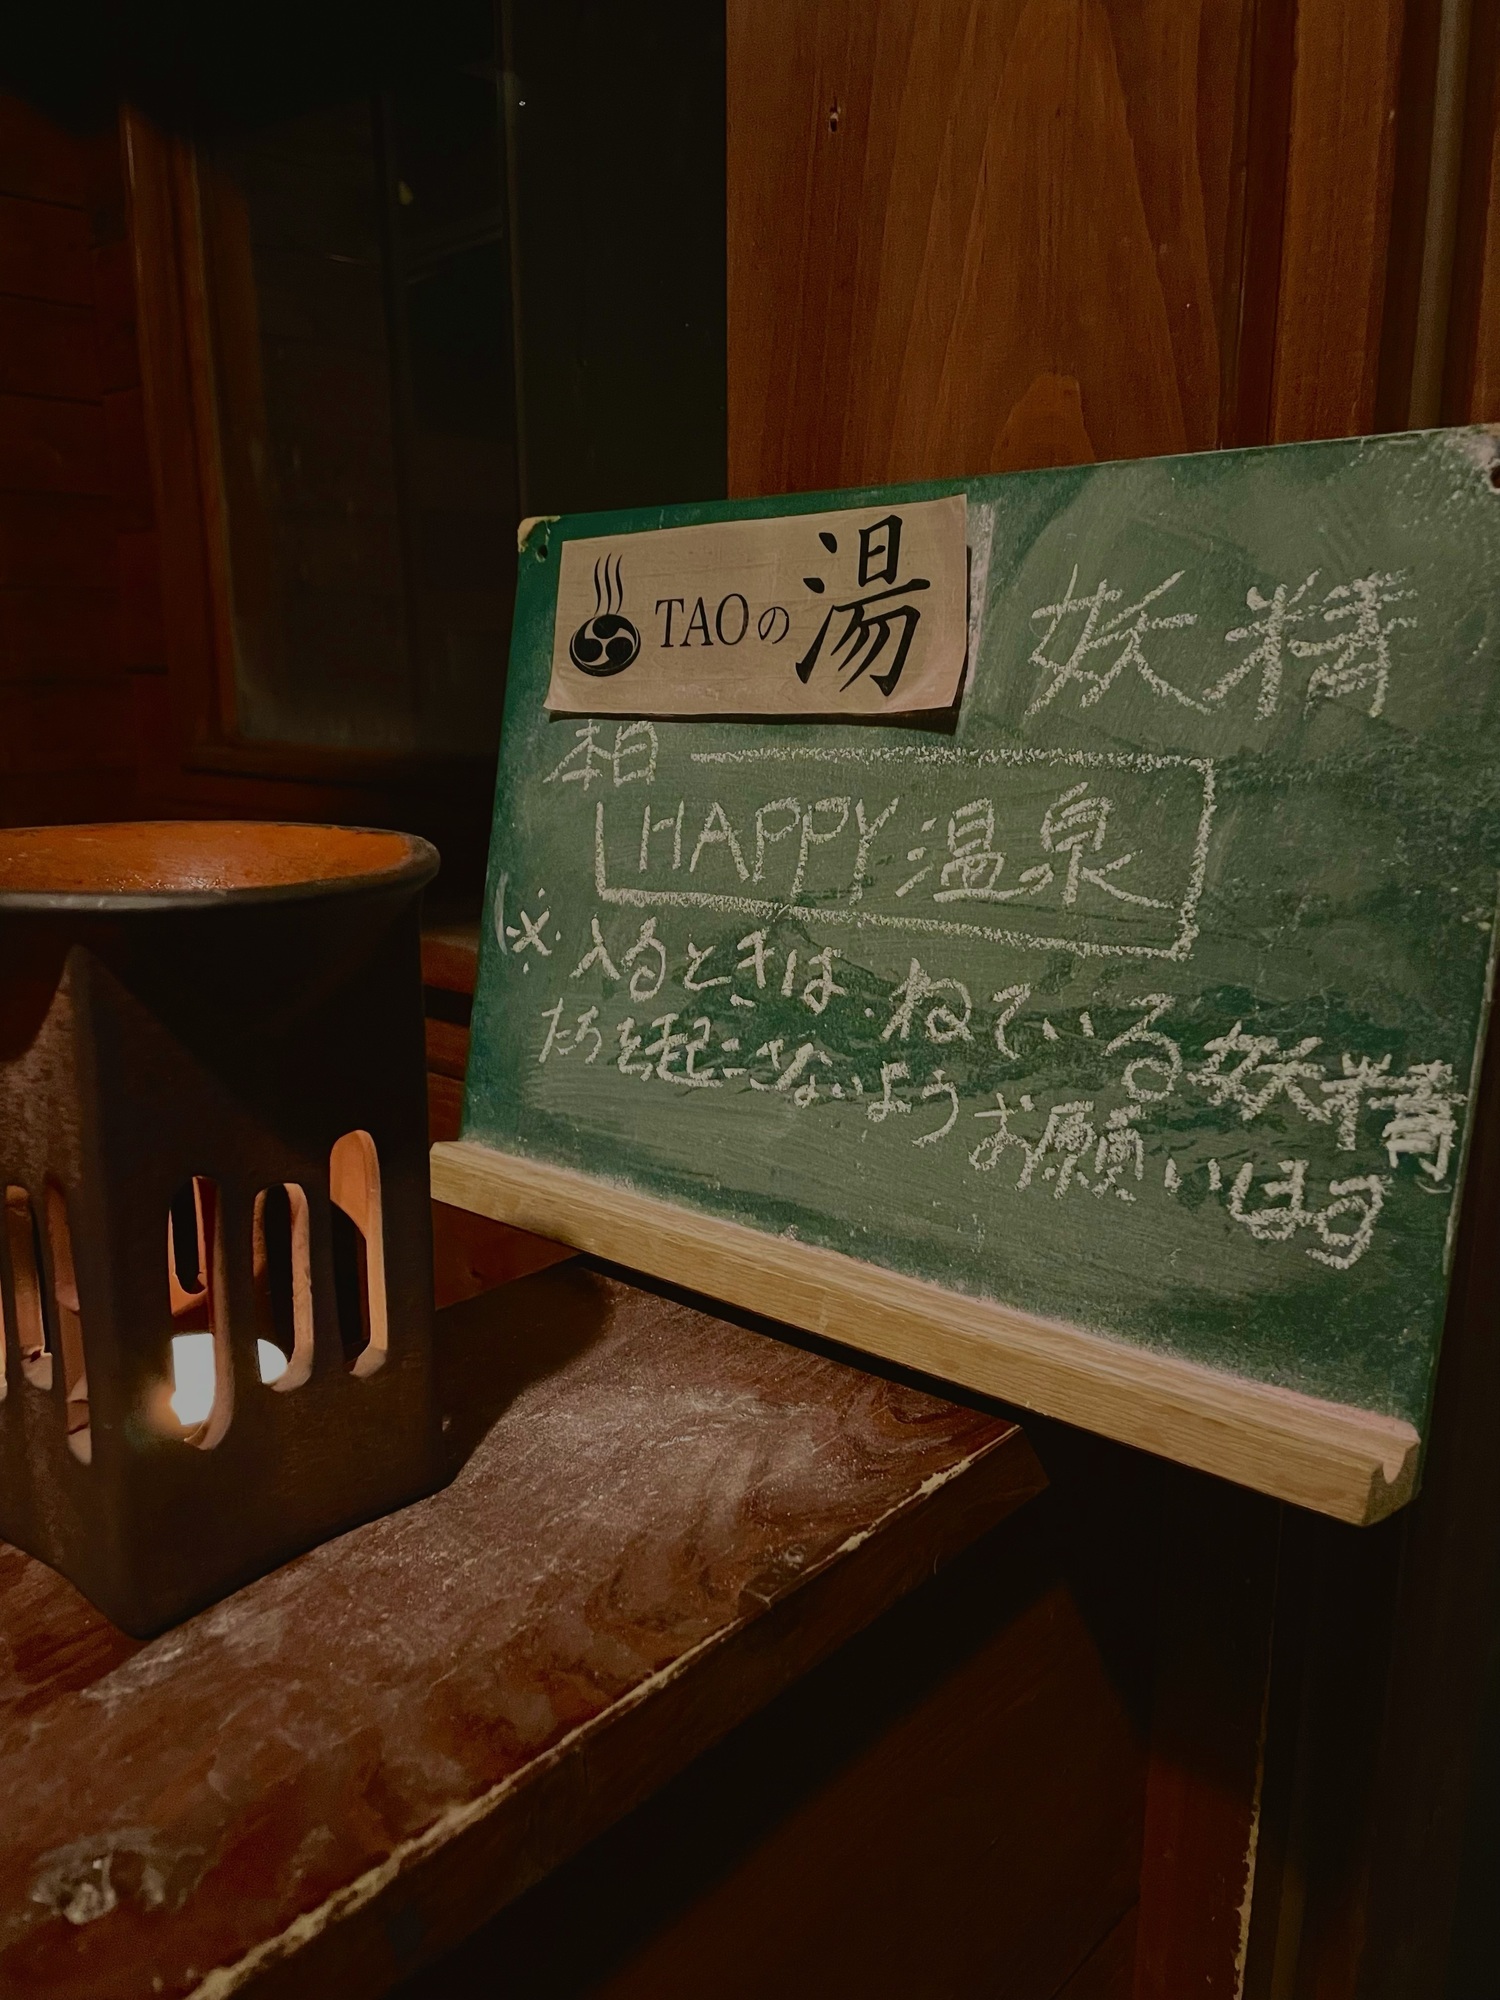 TAOの湯 妖精
本日
HAPPY温泉
※入るときは、ねている妖精
たちを起こさないようお願いします